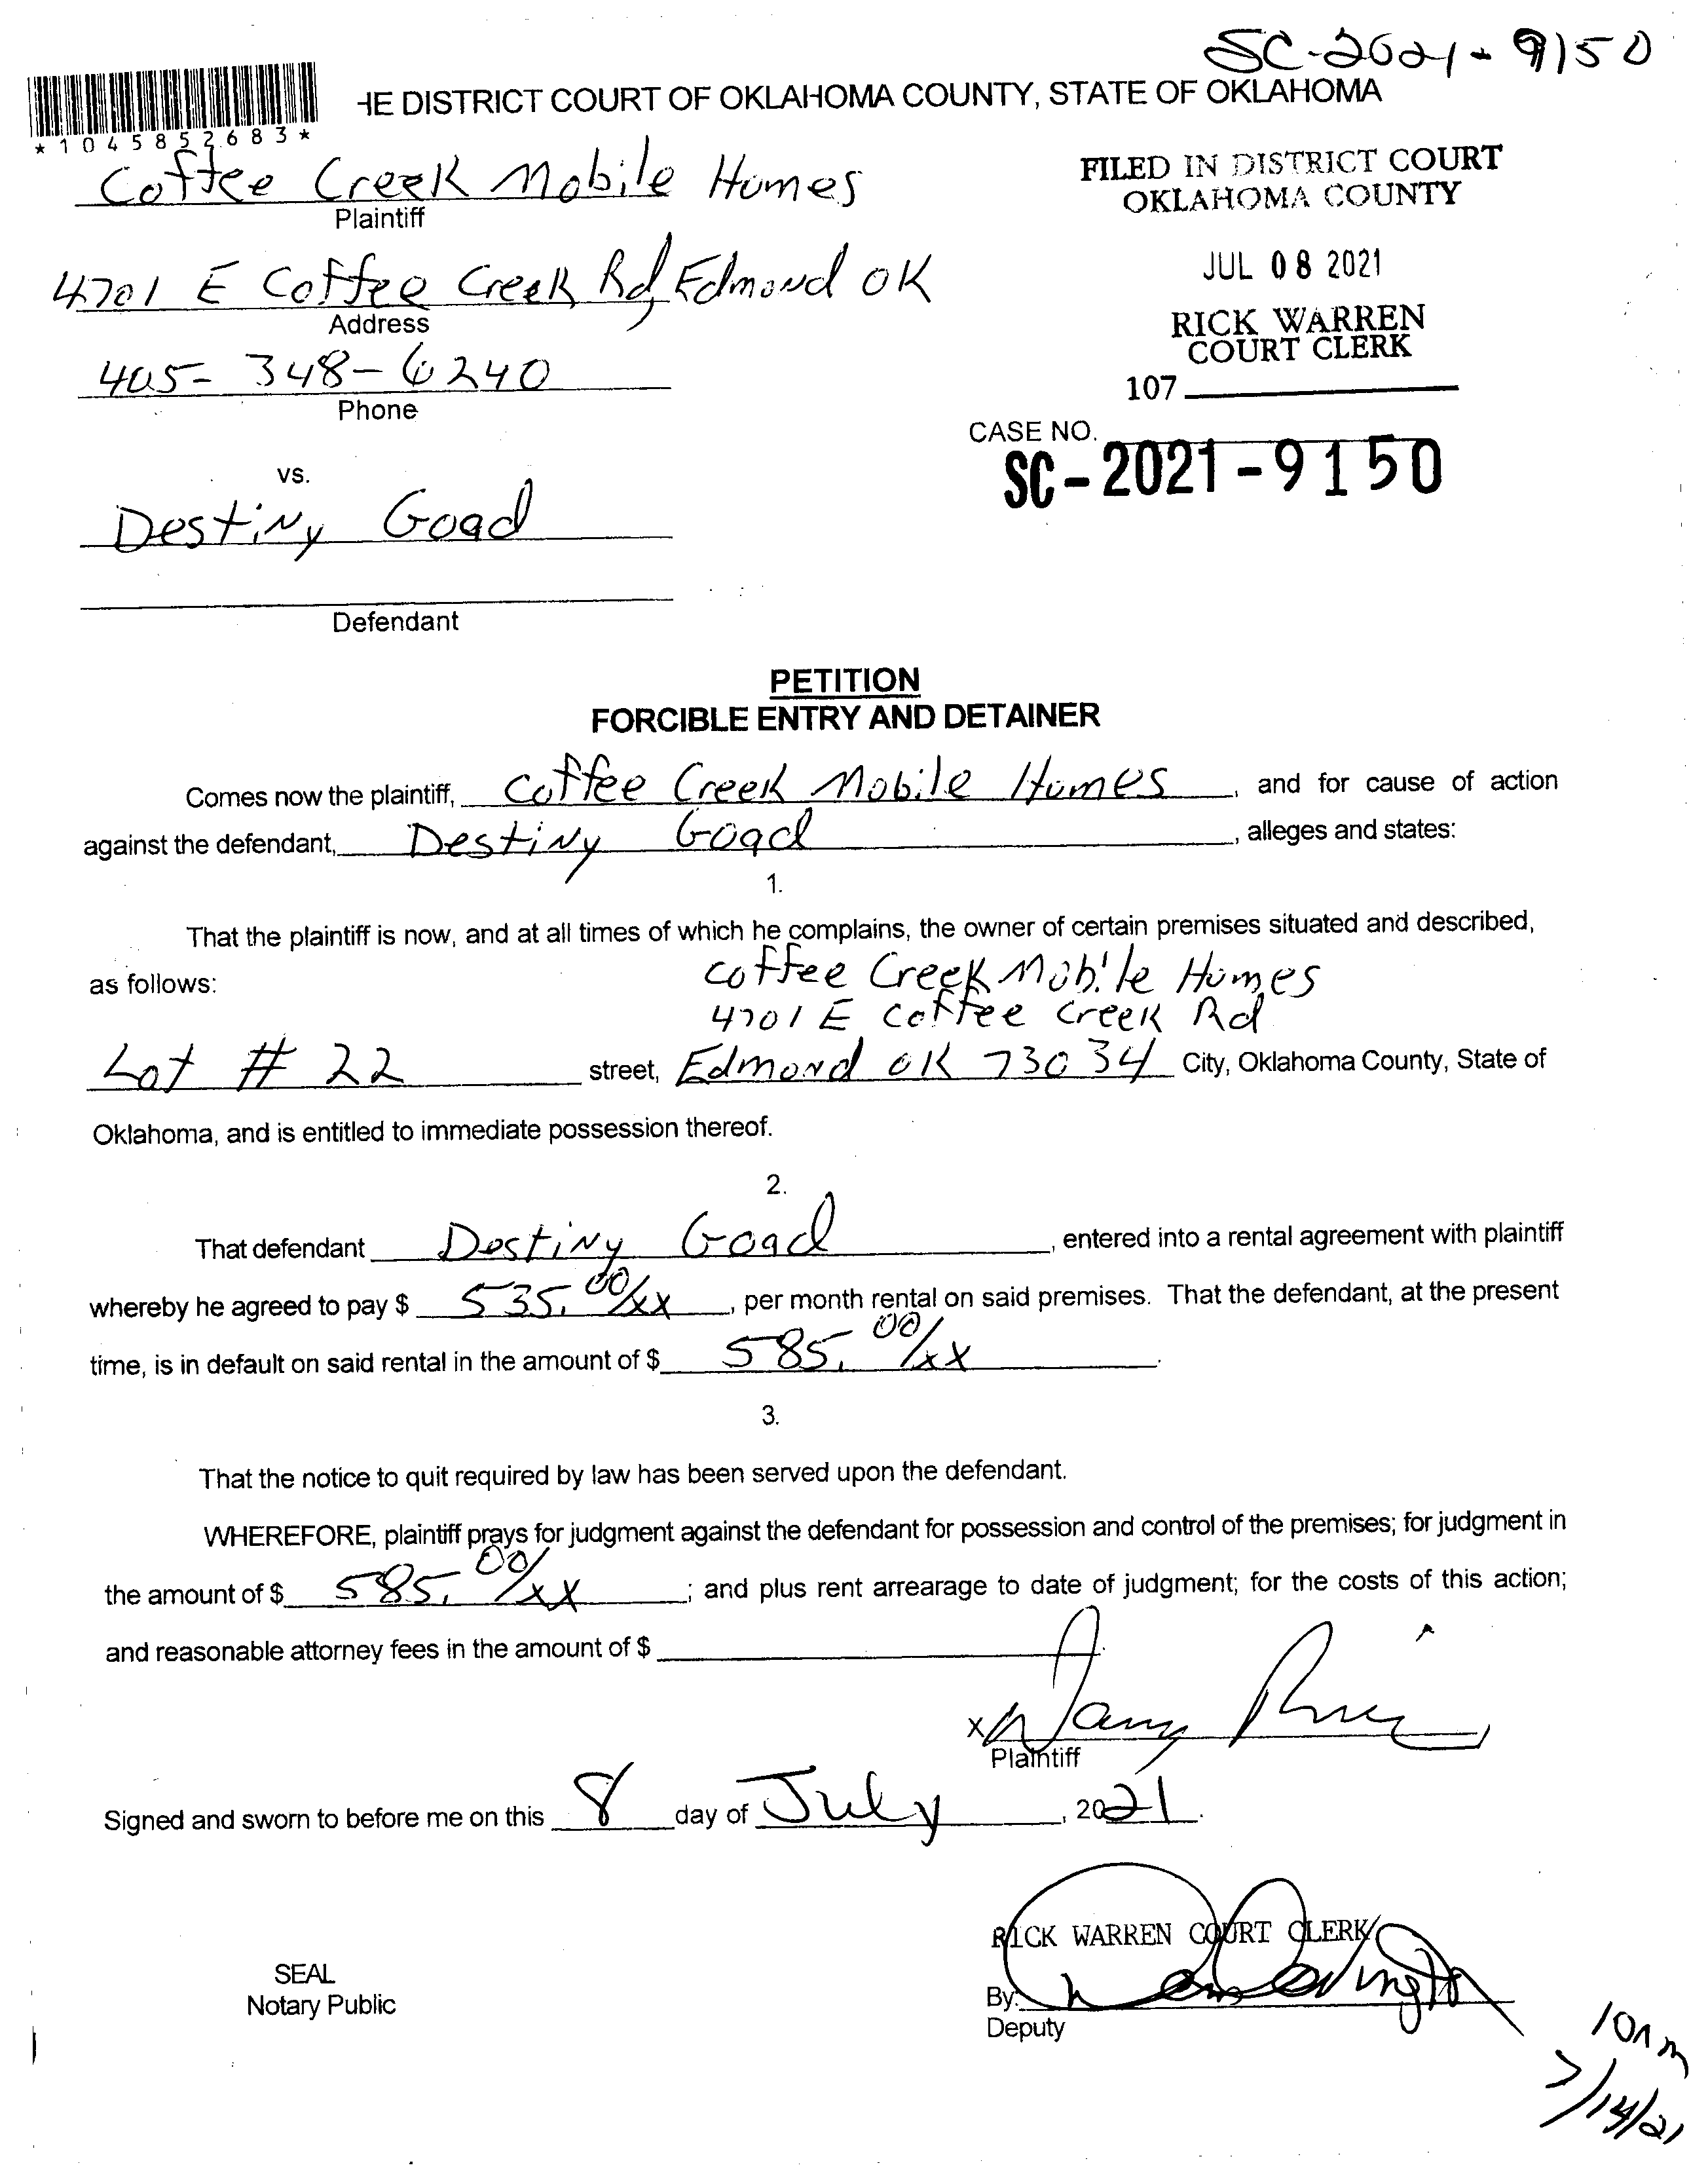 SC-2021-9150
HE DISTRICT COURT OF OKLAHOMA COUNTY, STATE OF OKLAHOMA
*1045852683*
Coffee Creek Mobile Homes
Plaintiff
FILED IN DISTRICT COURT
OKLAHOMA COUNTY
4701 E Coffee Creek Rd, Edmond OK
Address
JUL 08 2021
RICK WARREN
COURT CLERK
405-348-6240
Phone
107
CASE NO.
SC-2021-9150
vs.
Destiny Goad
Defendant
PETITION
FORCIBLE ENTRY AND DETAINER
Comes now the plaintiff, Coffee Creek Mobile Homes, and for cause of action
against the defendant, Destiny Goad, alleges and states:
1.
That the plaintiff is now, and at all times of which he complains, the owner of certain premises situated and described,
as follows: Coffee Creek Mobile Homes
4701 E Coffee Creek Rd
Lot # 22 street, Edmond OK 73034 City, Oklahoma County, State of
Oklahoma, and is entitled to immediate possession thereof.
2.
That defendant Destiny Goad, entered into a rental agreement with plaintiff
whereby he agreed to pay $ 535.00/xx, per month rental on said premises. That the defendant, at the present
time, is in default on said rental in the amount of $ 585.00/xx.
3.
That the notice to quit required by law has been served upon the defendant.
WHEREFORE, plaintiff prays for judgment against the defendant for possession and control of the premises; for judgment in
the amount of $ 585.00/xx; and plus rent arrearage to date of judgment; for the costs of this action;
and reasonable attorney fees in the amount of $
X
Plaintiff
Signed and sworn to before me on this 8 day of July, 2021.
RICK WARREN COURT CLERK
SEAL
Notary Public
By:
Deputy
10AM
7/14/21